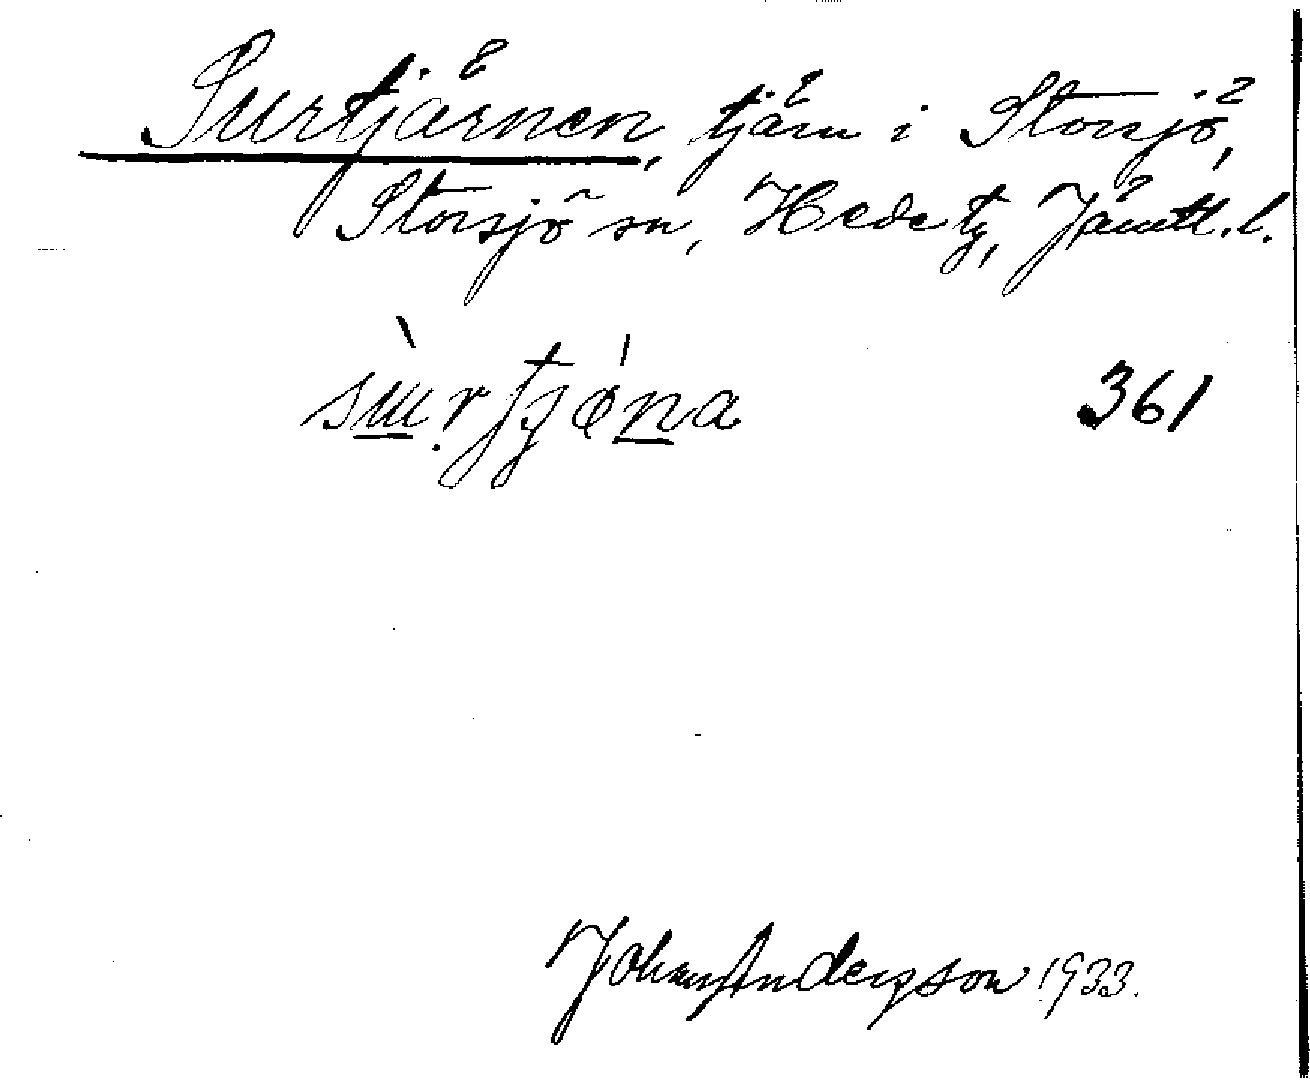 Surtjärnen, tjärn i Storsjö,
Storsjö sn, Hede tg, Jämtl. l.
361
Johan Anderson 1933.